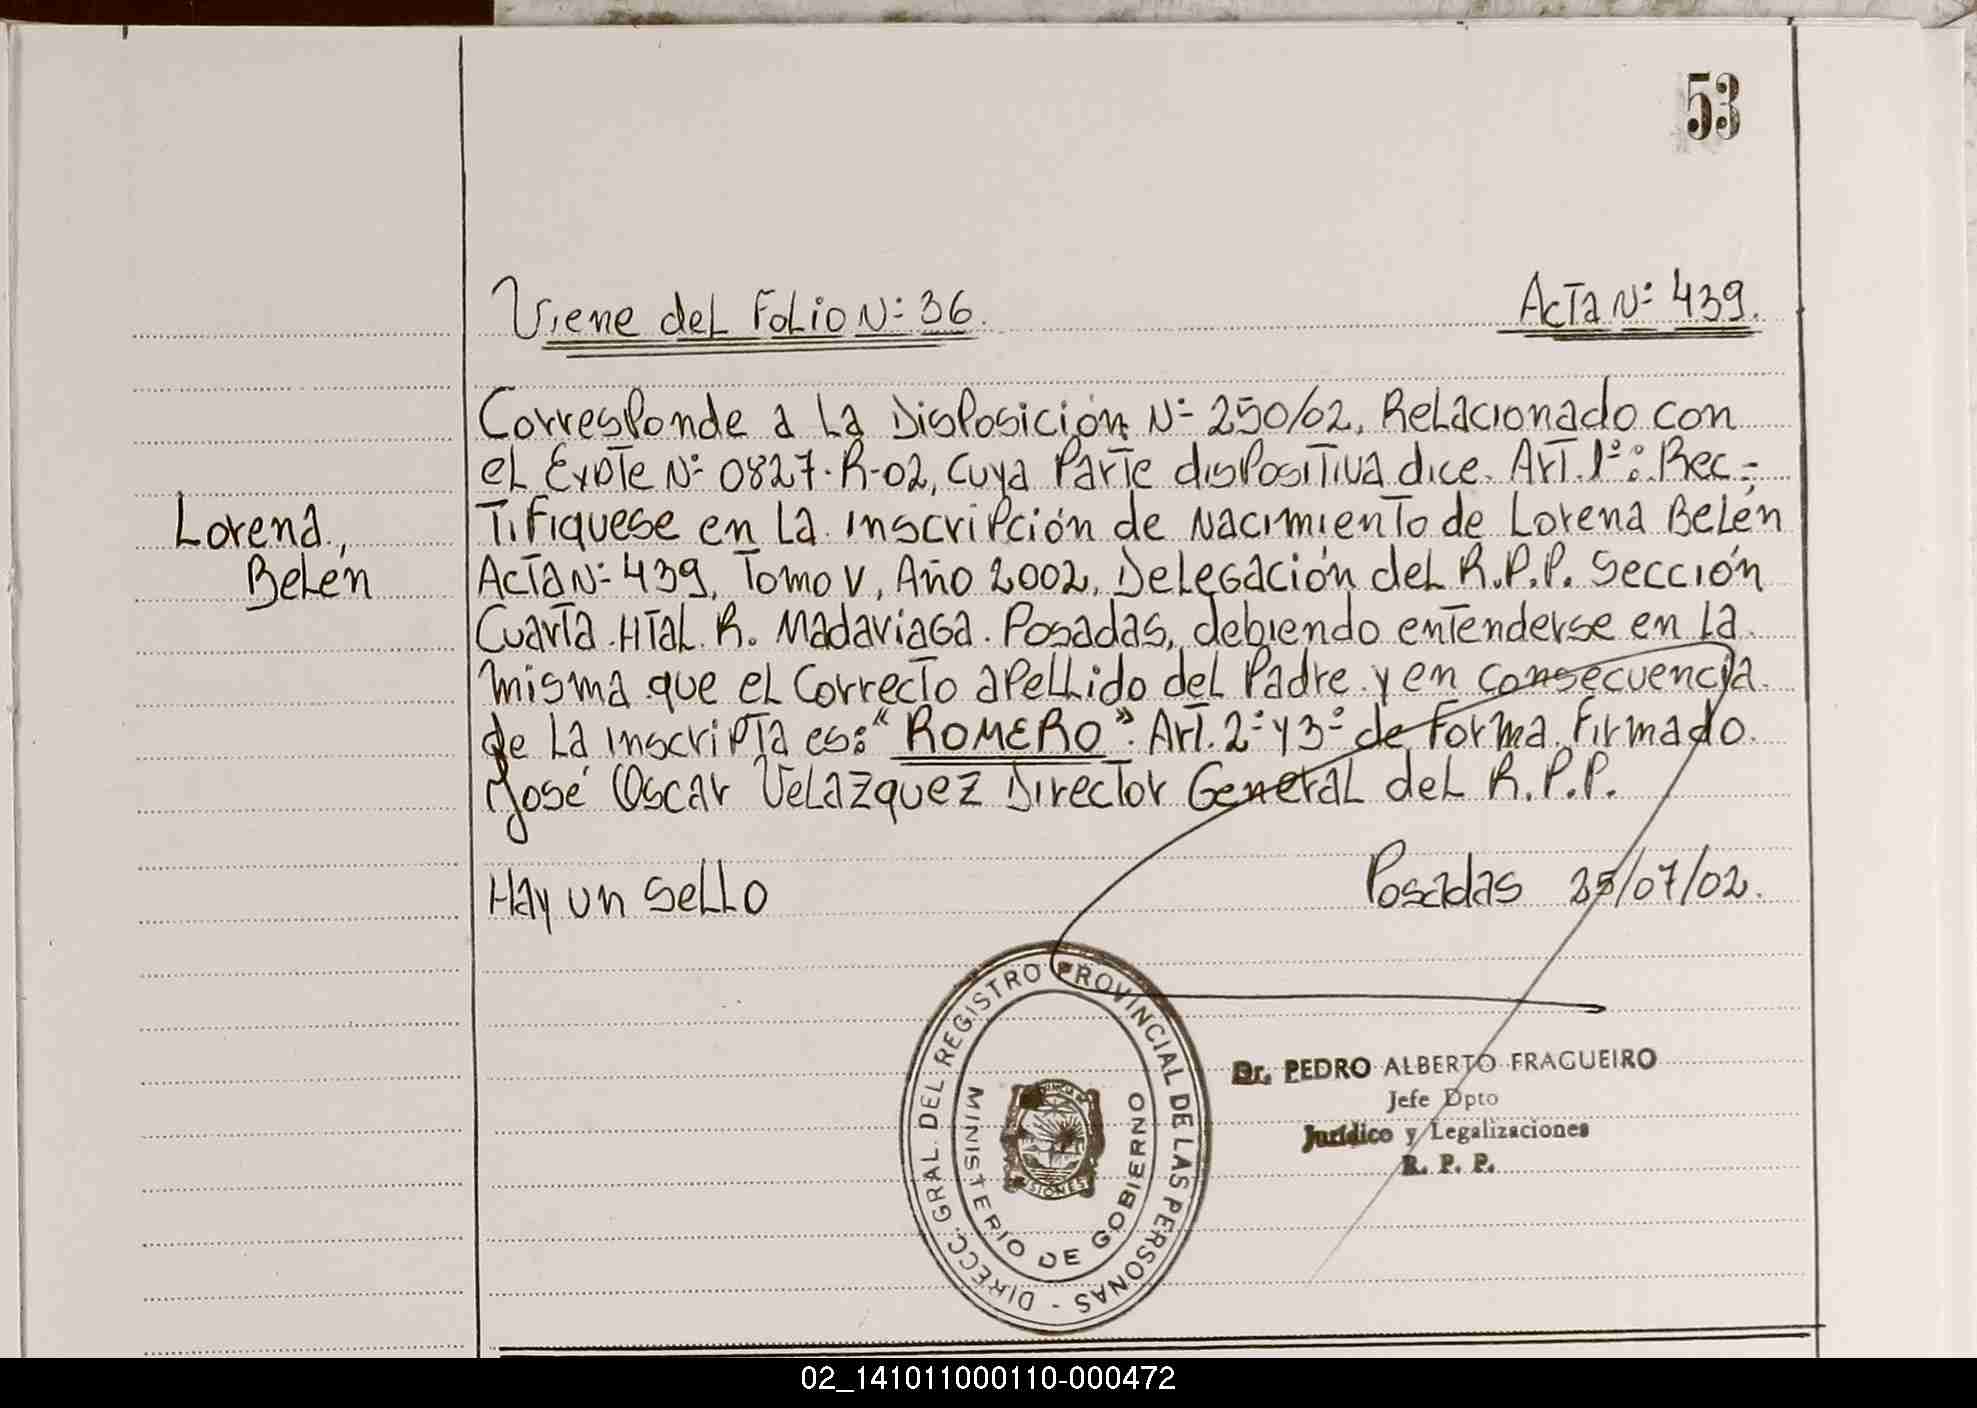 53
Viene del Folio Nº 36.
Acta Nº 439.
Corresponde a la Disposición Nº 250/02, Relacionado con
el Expte Nº 0827-R-02, cuya parte dispositiva dice. Art. 1º: Rec=
Lorena,
Belén
tifiquese en la inscripción de nacimiento de Lorena Belén
Acta Nº 439, Tomo V, Año 2002, Delegación del R.P.P. Sección
Cuarta Htal R. Madariaga. Posadas, debiendo entenderse en la
misma que el correcto apellido del Padre y en consecuencia
de la inscripta es: "ROMERO". Art. 2º y 3º de forma. Firmado
José Oscar Velazquez Director General del R.P.P.
Hay un sello
Posadas 25/07/02.
DIRECC. GRAL. DEL REGISTRO PROVINCIAL DE LAS PERSONAS -
MINISTERIO DE GOBIERNO
Dr. PEDRO ALBERTO FRAGUEIRO
Jefe Dpto
Jurídico y Legalizaciones
R. P. P.
02_141011000110-000472